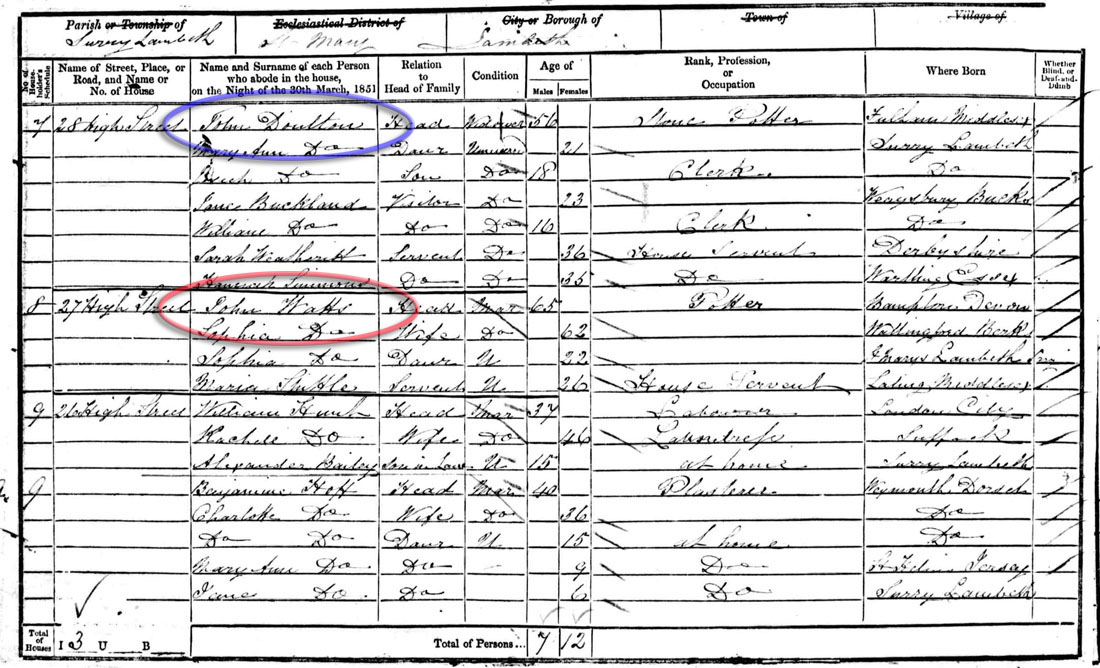 Parish or Township of Ecclesiastical District of City or Borough of Town of Village of
Surry Lambeth St Mary Lambeth
No. of House-holder's Schedule Name of Street, Place, or Road, and Name or No. of House Name and Surname of each Person who abode in the house, on the Night of the 30th March, 1851 Relation to Head of Family Condition Age of Males Females Rank, Profession, or Occupation Where Born Whether Blind, or Deaf-and-Dumb
7 28 High Street John Doulton Head Widower 56 Stone Potter Fulham Middlesex
Mary Ann Do Daur Unmarried 21 Surry Lambeth
Do Son Do 18 Clerk Do
Jane Buckland Visitor Do 23 Bucks
William Do Do Do 16 Clerk Do
Sarah Servent Do 36 House Servent Derbyshire
Hannah Simmons Do Do 35 Do Essex
8 27 High Street John Watts Head Mar 65 Potter Bampton Devon
Sophia Do Wife Do 62 Wallingford Berk
Sophia Do Daur U 22 St Marys Lambeth
Maria Servent U 26 House Servent Middlesex
9 26 High Street William Head Mar 37 Labourer London City
Rachell Do Wife Do 46 Laundress Suffolk
Alexander Bailey Son in Law U 15 at home Surry Lambeth
9 Benjamin Head Mar 40 Plasterer Weymouth Dorset
Charlotte Do Wife Do 36 Do
Do Do Daur U 15 at home Do
Mary Ann Do Do 9 Do Jersey
Jane Do Do 6 Do Surry Lambeth
Total of Houses I 3 U B Total of Persons... 7 12